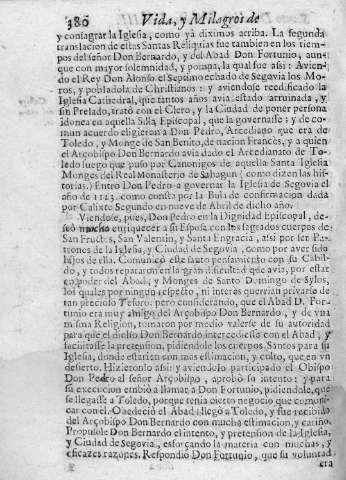 386 Vida, y Milagros de
y consagrar la Iglesia, como yà diximos arriba. La segunda
translacion de estas Santas Reliquias fue tambien en los tiem-
pos del señor Don Bernardo, y del Abad Don Fortunio, aun-
que con mayor solemnidad, y pompa, la qual fue assi: Avien-
do el Rey Don Alonso el Septimo echado de Segovia los Mo-
ros, y pobladola de Christianos: y aviendose reedificado la
Iglesia Cathedral, que tantos años avia estado arruinada, y
sin Prelado, tratò con el Clero, y la Ciudad de poner persona
idonea en aquella Silla Episcopal, que la governasse: y de co-
mun acuerdo eligieron a Don Pedro, Arcediano que era de
Toledo, y Monge de San Benito, de nacion Francès, y a quien
el Arçobispo Don Bernardo avia dado el Arcedianato de To-
ledo luego que puso por Canonigos de aquella Santa Iglesia
Monges del Real Monasterio de Sahagun (como dizen las his-
torias.) Entrò Don Pedro a governar la Iglesia de Segovia el
año de 1123. como consta por la Bula de confirmacion dada
por Calixto Segundo en nueve de Abril de dicho año.
Viendose, pues, Don Pedro en la Dignidad Episcopal, de-
seò mucho enriquecer a su Esposa con los sagrados cuerpos de
San Fructos, San Valentin, y Santa Engracia, assi por ser Pa-
tronos de la Iglesia, y Ciudad de Segovia, como por aver sido
hijos de ella. Comunicò este santo pensamiento con su Cabil-
do, y todos repararon en la gran dificultad que avia, por estar
en poder del Abad, y Monges de Santo Domingo de Sylos,
los quales por ningun respecto, ni interès querrian privarse de
tan precioso Tesoro: pero considerando, que el Abad D. For-
tunio era muy amigo del Arçobispo Don Bernardo, y de vna
misma Religion, tomaron por medio valerse de su autoridad
para que el dicho Don Bernardo intercediesse con el Abad, y
facilitasse la pretension, pidiendole los cuerpos Santos para su
Iglesia, donde estarian con mas estimacion, y culto, que en vn
desierto. Hizieronlo assi: y aviendolo participado el Obispo
Don Pedro al señor Arçobispo, aprobò su intento: y para
su execucion embiò a llamar a Don Fortunio, pidiendole, que
se llegasse a Toledo, porque tenia cierto negocio que comuni-
car con el. Obedeciò el Abad: llegò a Toledo, y fue recibido
del Arçobispo Don Bernardo con mucha estimacion, y cariño.
Propusole Don Bernardo el intento, y pretension de la Iglesia,
y Ciudad de Segovia, esforçando la materia con muchas, y
eficazes razones. Respondiò Don Fortunio, que su voluntad
era